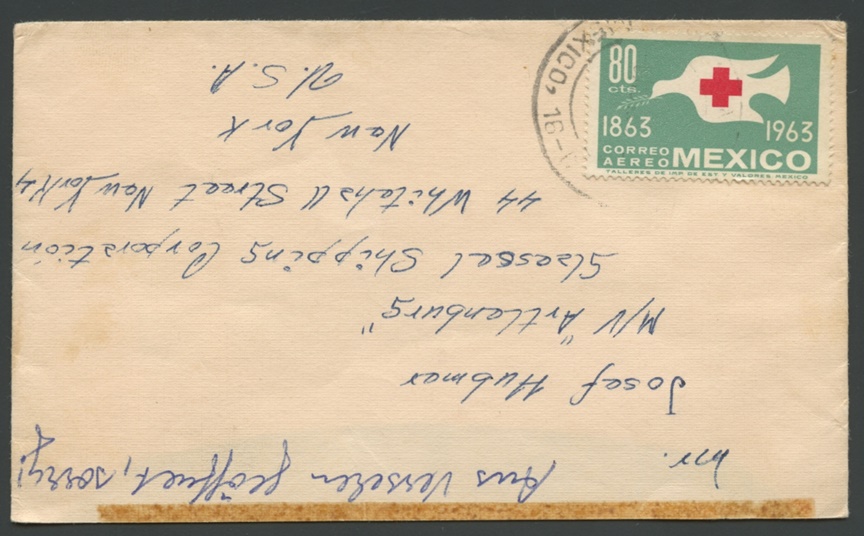 Aus Versehen geöffnet, sorry!
Mr.
Josef Hubmer
M/V "Artlenburg"
Stassal Shipping Corporation
44 Whitehall Street New York 4
New York
U.S.A.
80
cts.
1863 1963
CORREO
AEREO MEXICO
TALLERES DE IMP. DE EST. Y VALORES. MEXICO
MEXICO, 
16-